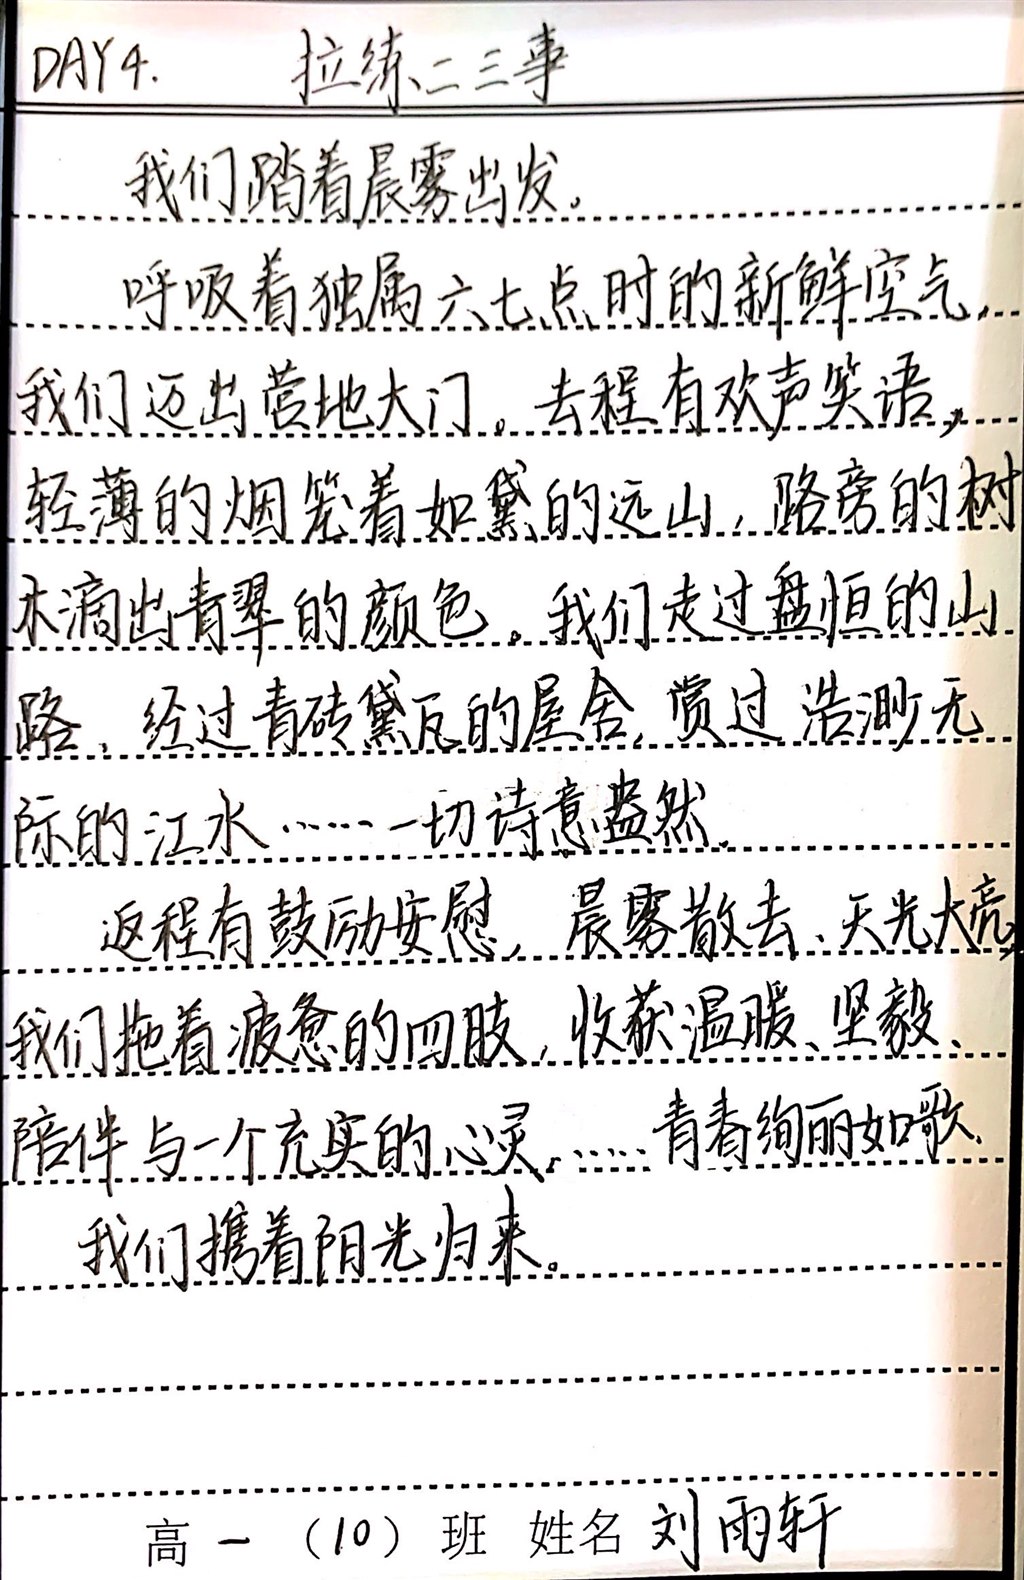 DAY 4. 拉练二三事
我们踏着晨雾出发。
呼吸着独属六七点时的新鲜空气,
我们迈出营地大门。去程有欢声笑语,
轻薄的烟笼着如黛的远山,路旁的树
木滴出青翠的颜色。我们走过盘恒的山
路、经过青砖黛瓦的屋舍,赏过浩渺无
际的江水……一切诗意盎然。
返程有鼓励安慰,晨雾散去、天光大亮,
我们拖着疲惫的四肢,收获温暖、坚毅、
陪伴与一个充实的心灵……青春绚丽如歌、
我们携着阳光归来。
高一(10)班 姓名 刘雨轩